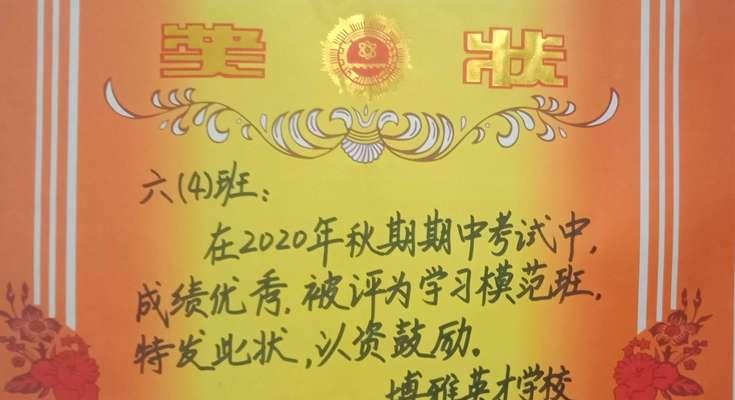 奖状
六(4)班：
在2020年秋期期中考试中，
成绩优秀，被评为学习模范班，
特发此状，以资鼓励。
博雅英才学校